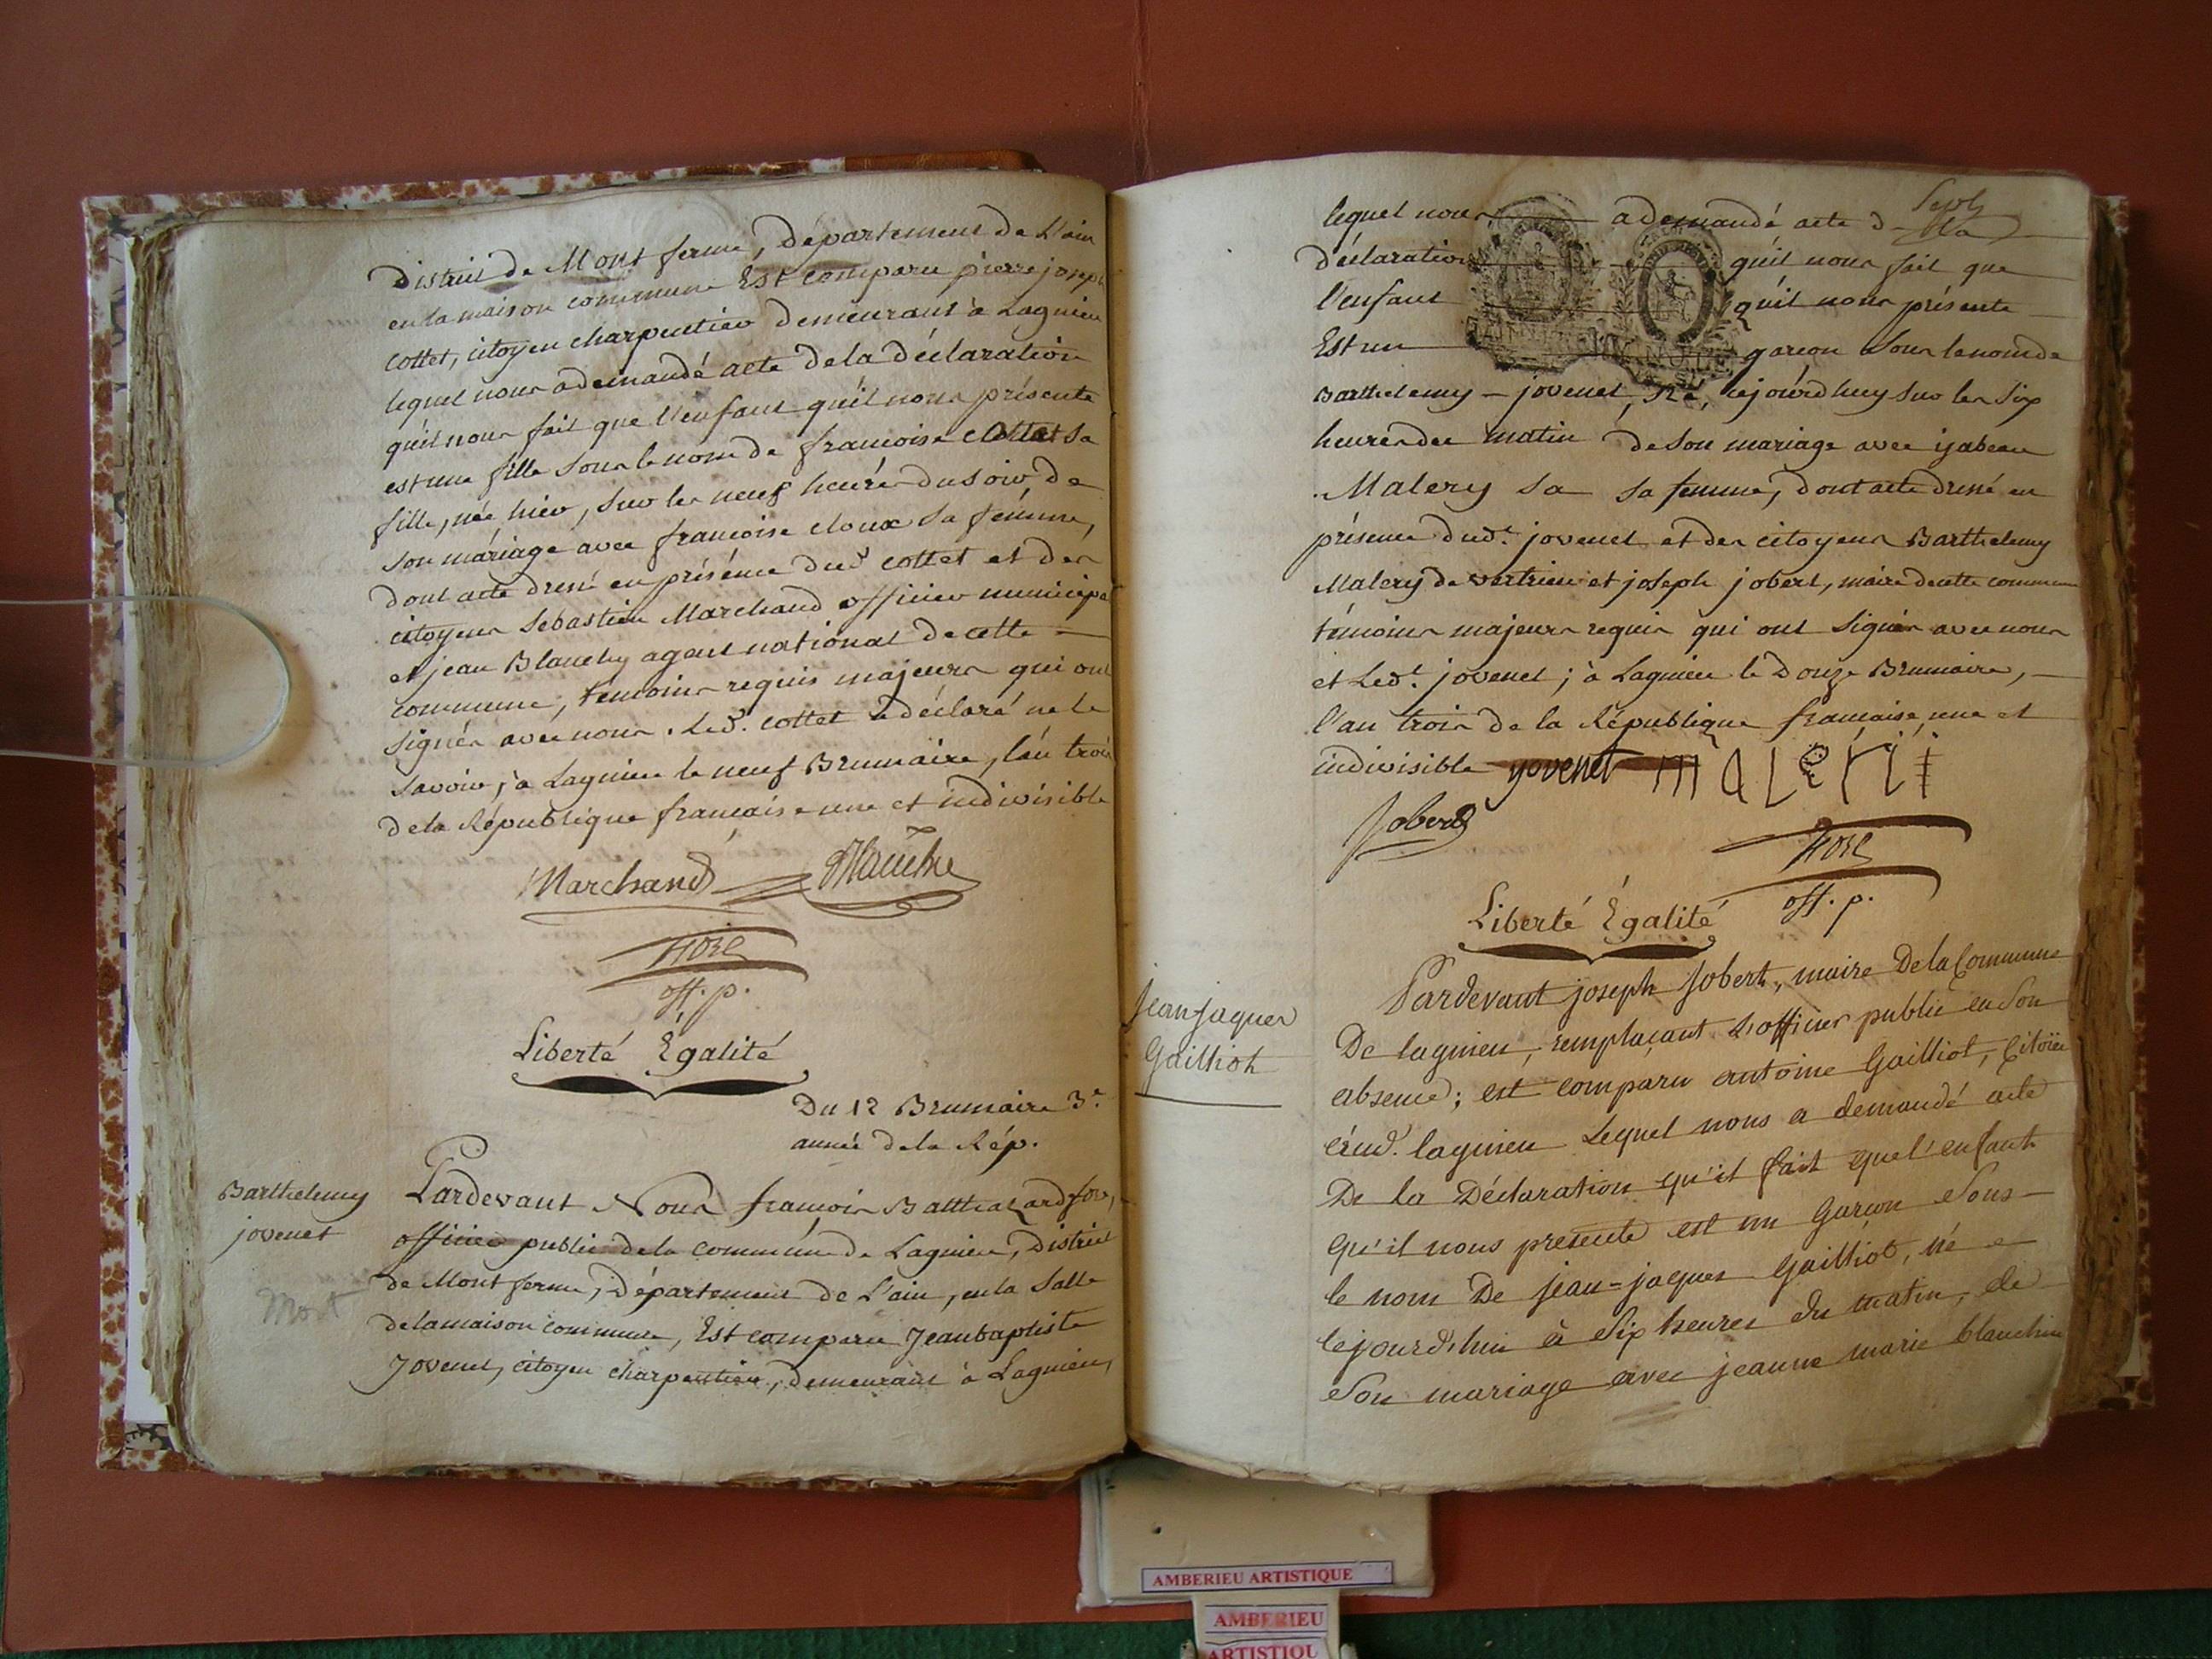 District de Mont ferme, Département de L'ain
en la maison commune Est comparu pierre joseph
cottet, citoyen charpentier demeurant à Lagnieu
lequel nous a demandé acte de la déclaration
qu'il nous fait que l'enfant qu'il nous présente
est une fille sous le nom de françoise cottet sa
fille, née hier, sur les neuf heures du soir, de
son mariage avec françoise cloux sa femme,
dont acte dressé en présence dud. cottet et des
citoyens Sébastien Marchand officier municipal
et jean Blanchy agent national de cette
commune, témoins requis majeurs qui ont
signés avec nous. Led. cottet a déclaré ne le
savoir, à Lagnieu le neuf Brumaire, l'an trois
de la République française une et indivisible
Marchand Blanche
off. p.
Liberté Égalité
Du 12 Brumaire 3e.
année de la Rép.
Barthelemy
jovenet
Mort
Pardevant Nous françois Balthazard
officier public de la commune de Lagnieu, District
de Mont ferme, Département de L'ain, en la Salle
de la maison commune, Est comparu Jean baptiste
Jovenet, citoyen charpentier, demeurant à Lagnieu,
Sept
lequel nous a demandé acte d la
déclaration qu'il nous fait que
l'enfant qu'il nous présente
Est un garçon sous le nom de
Barthelemy - jovenet, Né, cejourd'huy sur les six
heures du matin de son mariage avec ysabeau
Malery sa sa femme, dont acte dressé en
présence dud. jovenet et des citoyens Barthelemy
Malery de vertrieu et joseph jobert, maire de cette commune
témoins majeurs requis qui ont signés avec nous
et Led. jovenet; à Lagnieu le Douze Brumaire,
l'an trois de la République française, une et
indivisible yovenet maleri
Jobert
off. p.
Liberté Égalité
Jean Jaques
Gailliot
Pardevant joseph Jobert, maire De la Commune
De lagnieu, remplaçant L'officier public en Son
absence; est comparu antoine Gailliot, Citoïen
dud. lagnieu Lequel nous a demandé acte
De la Déclaration qu'il fait que l'enfant
qu'il nous presente est un Garçon Sous
le nom De jean=jaques Gailliot, né
cejourd'hui à Six heures du matin, de
Son mariage avec jeanne marie blanchin
AMBERIEU ARTISTIQUE
AMBERIEU
ARTISTIQU